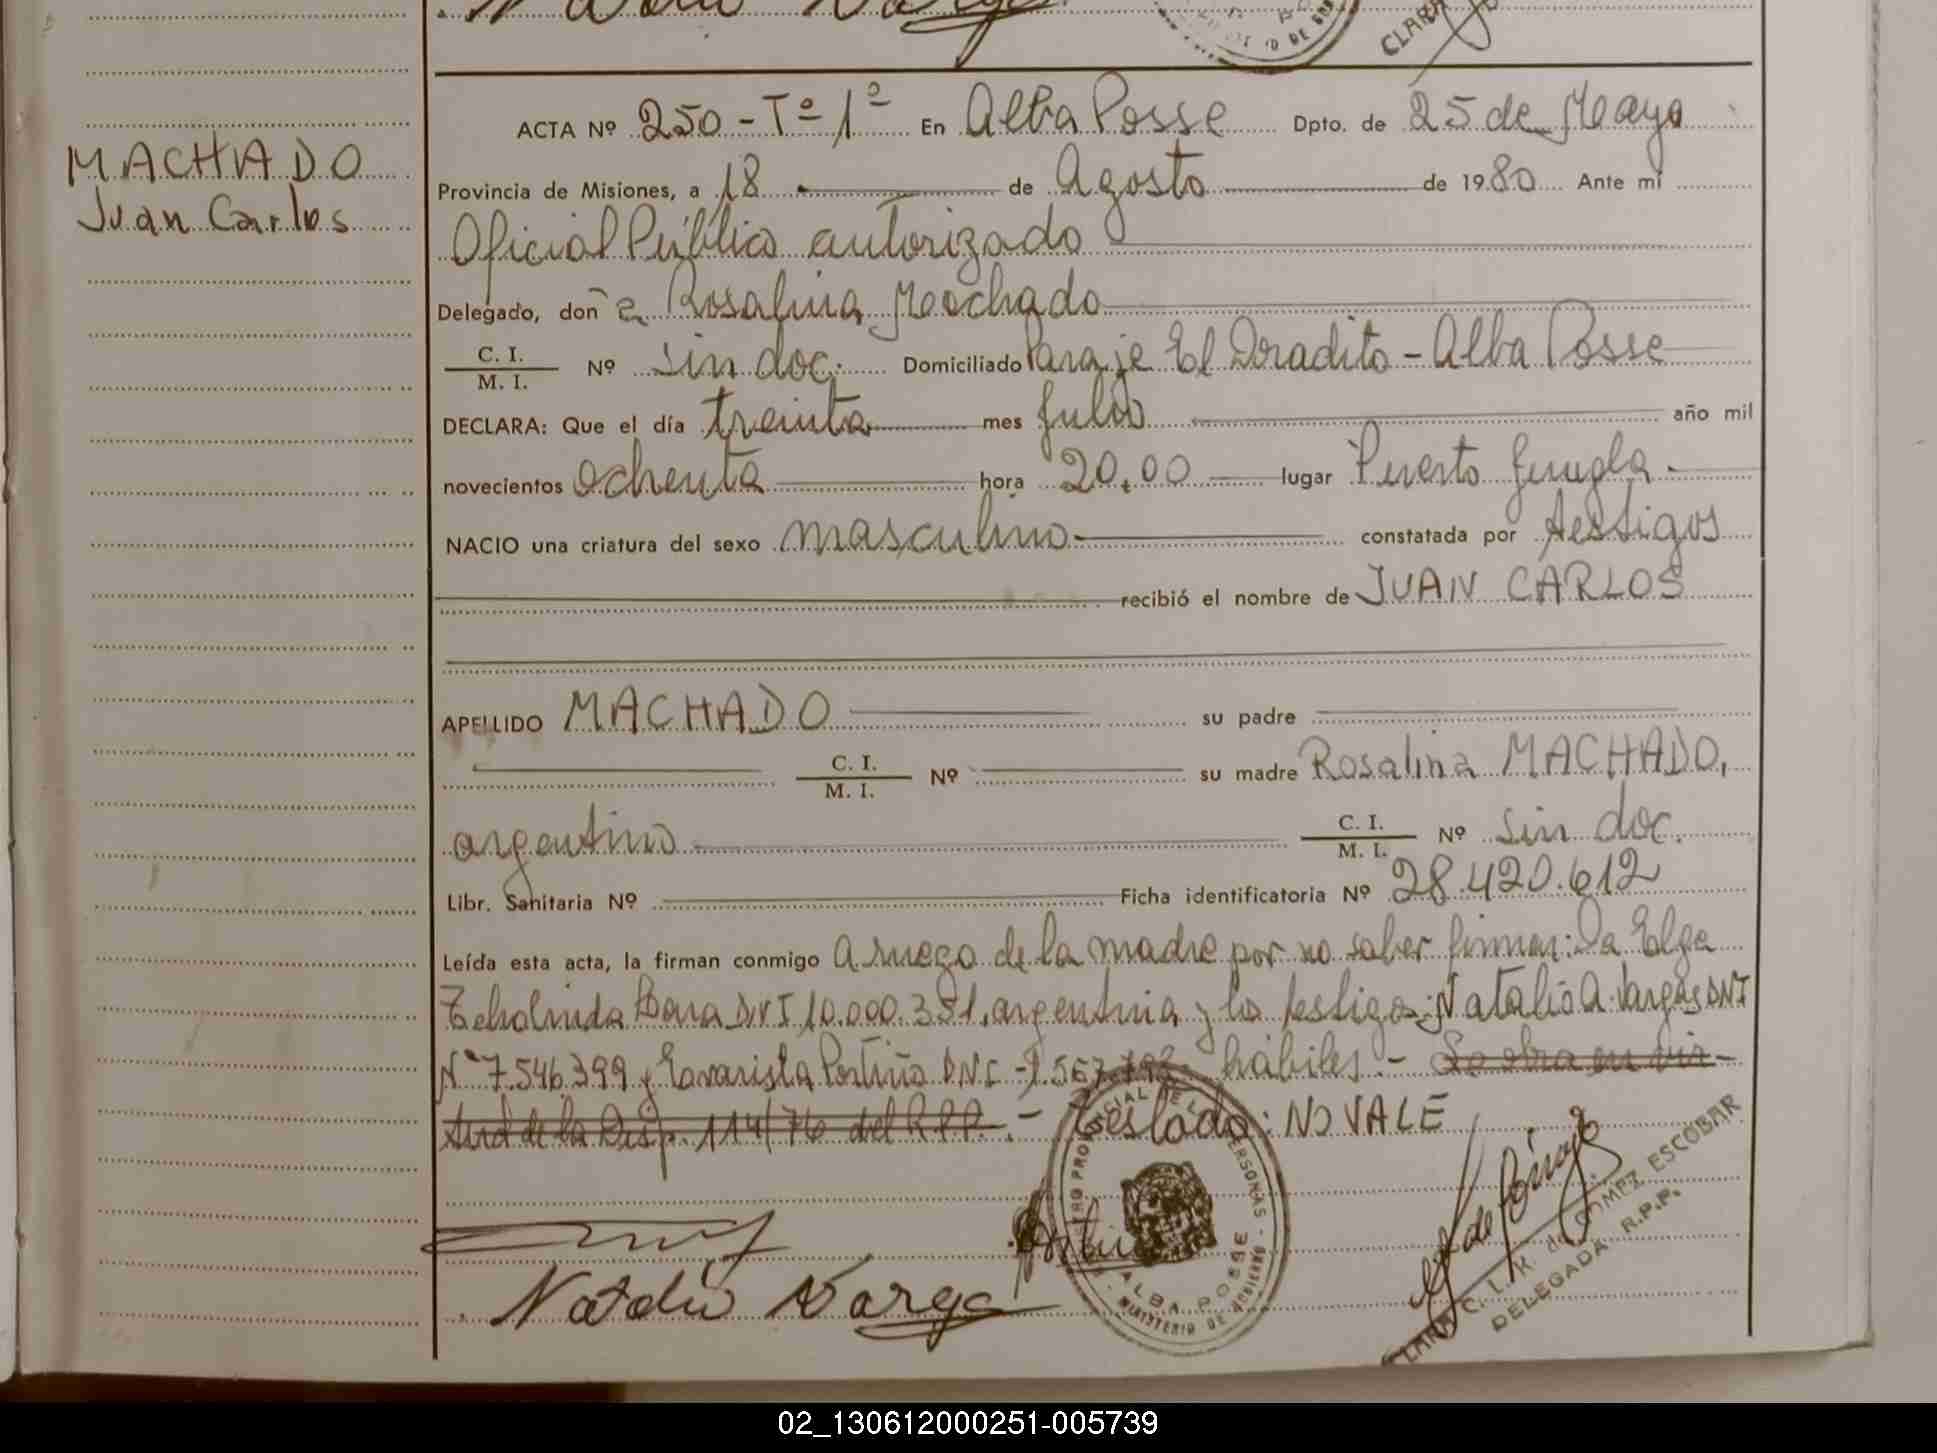 ACTA Nº 250 - Tº 1º En Alba Posse Dpto. de 25 de Mayo
MACHADO
Juan Carlos
Provincia de Misiones, a 18 de Agosto de 1980 Ante mí
Oficial Público autorizado
Delegado, doña Rosalina Machado
C. I. / M. I. Nº sin doc. Domiciliado Paraje El Doradito - Alba Posse
DECLARA: Que el día treinta mes julio año mil
novecientos ochenta hora 20,00 lugar Puerto
NACIO una criatura del sexo masculino constatada por testigos
recibió el nombre de JUAN CARLOS
APELLIDO MACHADO su padre
C. I. / M. I. Nº su madre Rosalina MACHADO,
argentino C. I. / M. I. Nº sin doc.
Libr. Sanitaria Nº Ficha identificatoria Nº 28.420.612
Leída esta acta, la firman conmigo A ruego de la madre por no saber firmar: Da Elga
DNI 10.000.351, argentina y los testigos: Natalio A. Vargas DNI
Nº 7.546.399 y Portiño hábiles. - Se obra en vir
tud de la Disp. 114/76 del R.P.P. - Testado: NO VALE
Natalio Varga
REGISTRO PROVINCIAL DE LAS PERSONAS
ALBA POSSE
MINISTERIO DE GOBIERNO
CLARA C. L. K. de GOMEZ ESCOBAR
DELEGADA R.P.P.
CLARA
02_130612000251-005739